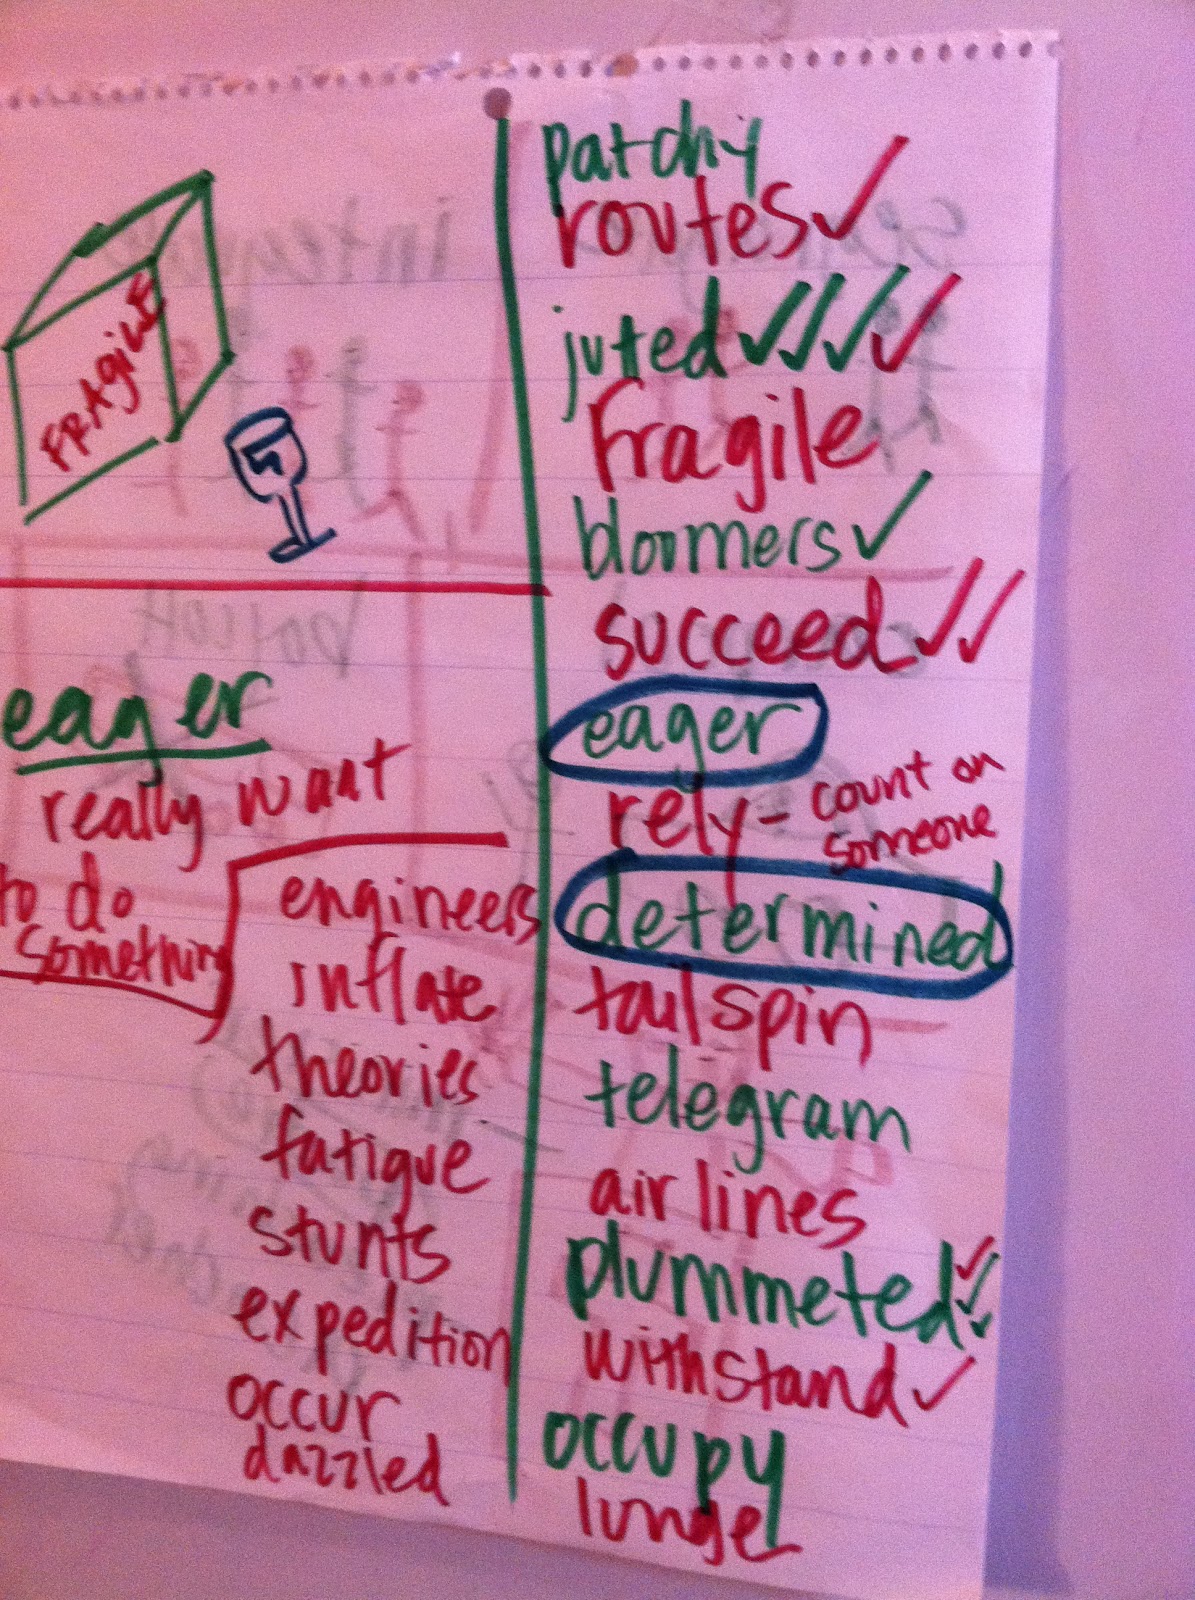 FRAGiLE
eager
really want
to do
something
engineers
inflate
theories
fatigue
stunts
expedition
occur
dazzled
patchy
routes ✓
juted ✓✓✓✓
Fragile
bloomers ✓
succeed ✓✓
eager
rely - count on
someone
determined
tailspin
telegram
airlines
plummeted ✓✓✓
withstand ✓
occupy
lunge